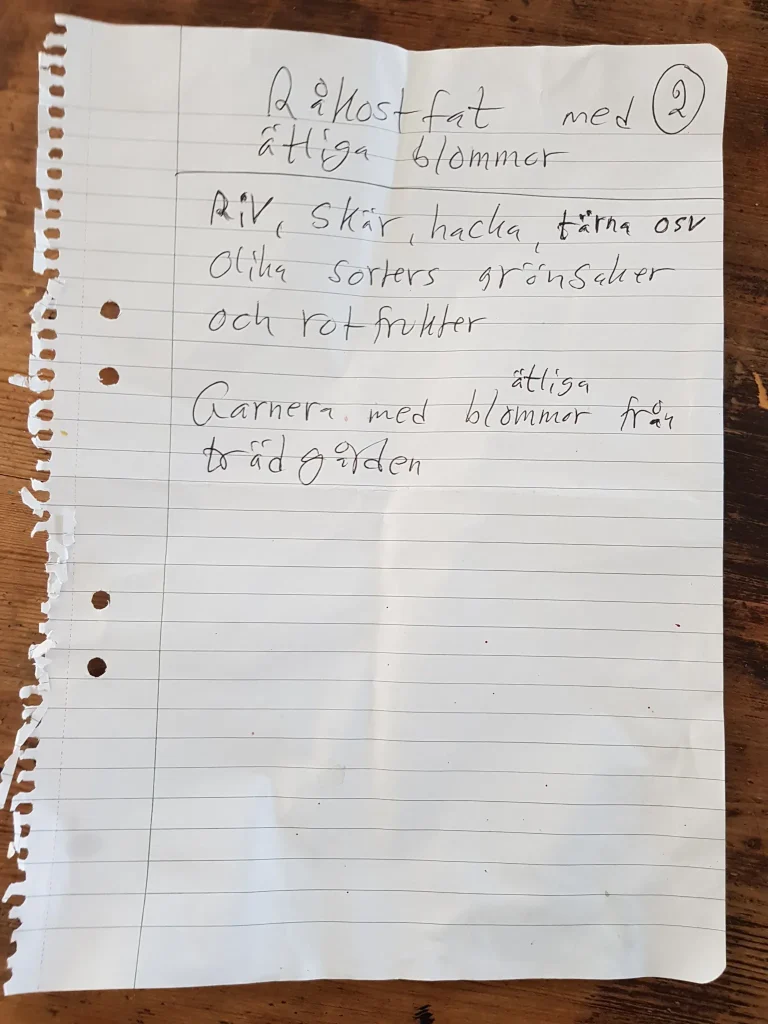 Råkostfat med 2
ätliga blommor
Riv, skär, hacka, tärna osv
Olika sorters grönsaker
och rotfrukter
ätliga
Garnera med blommor från
trädgården